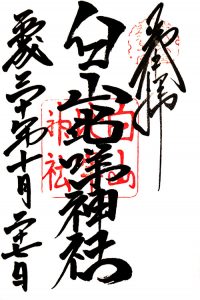 白山比咩神社
平成三十年十月二十七日
白山
神社